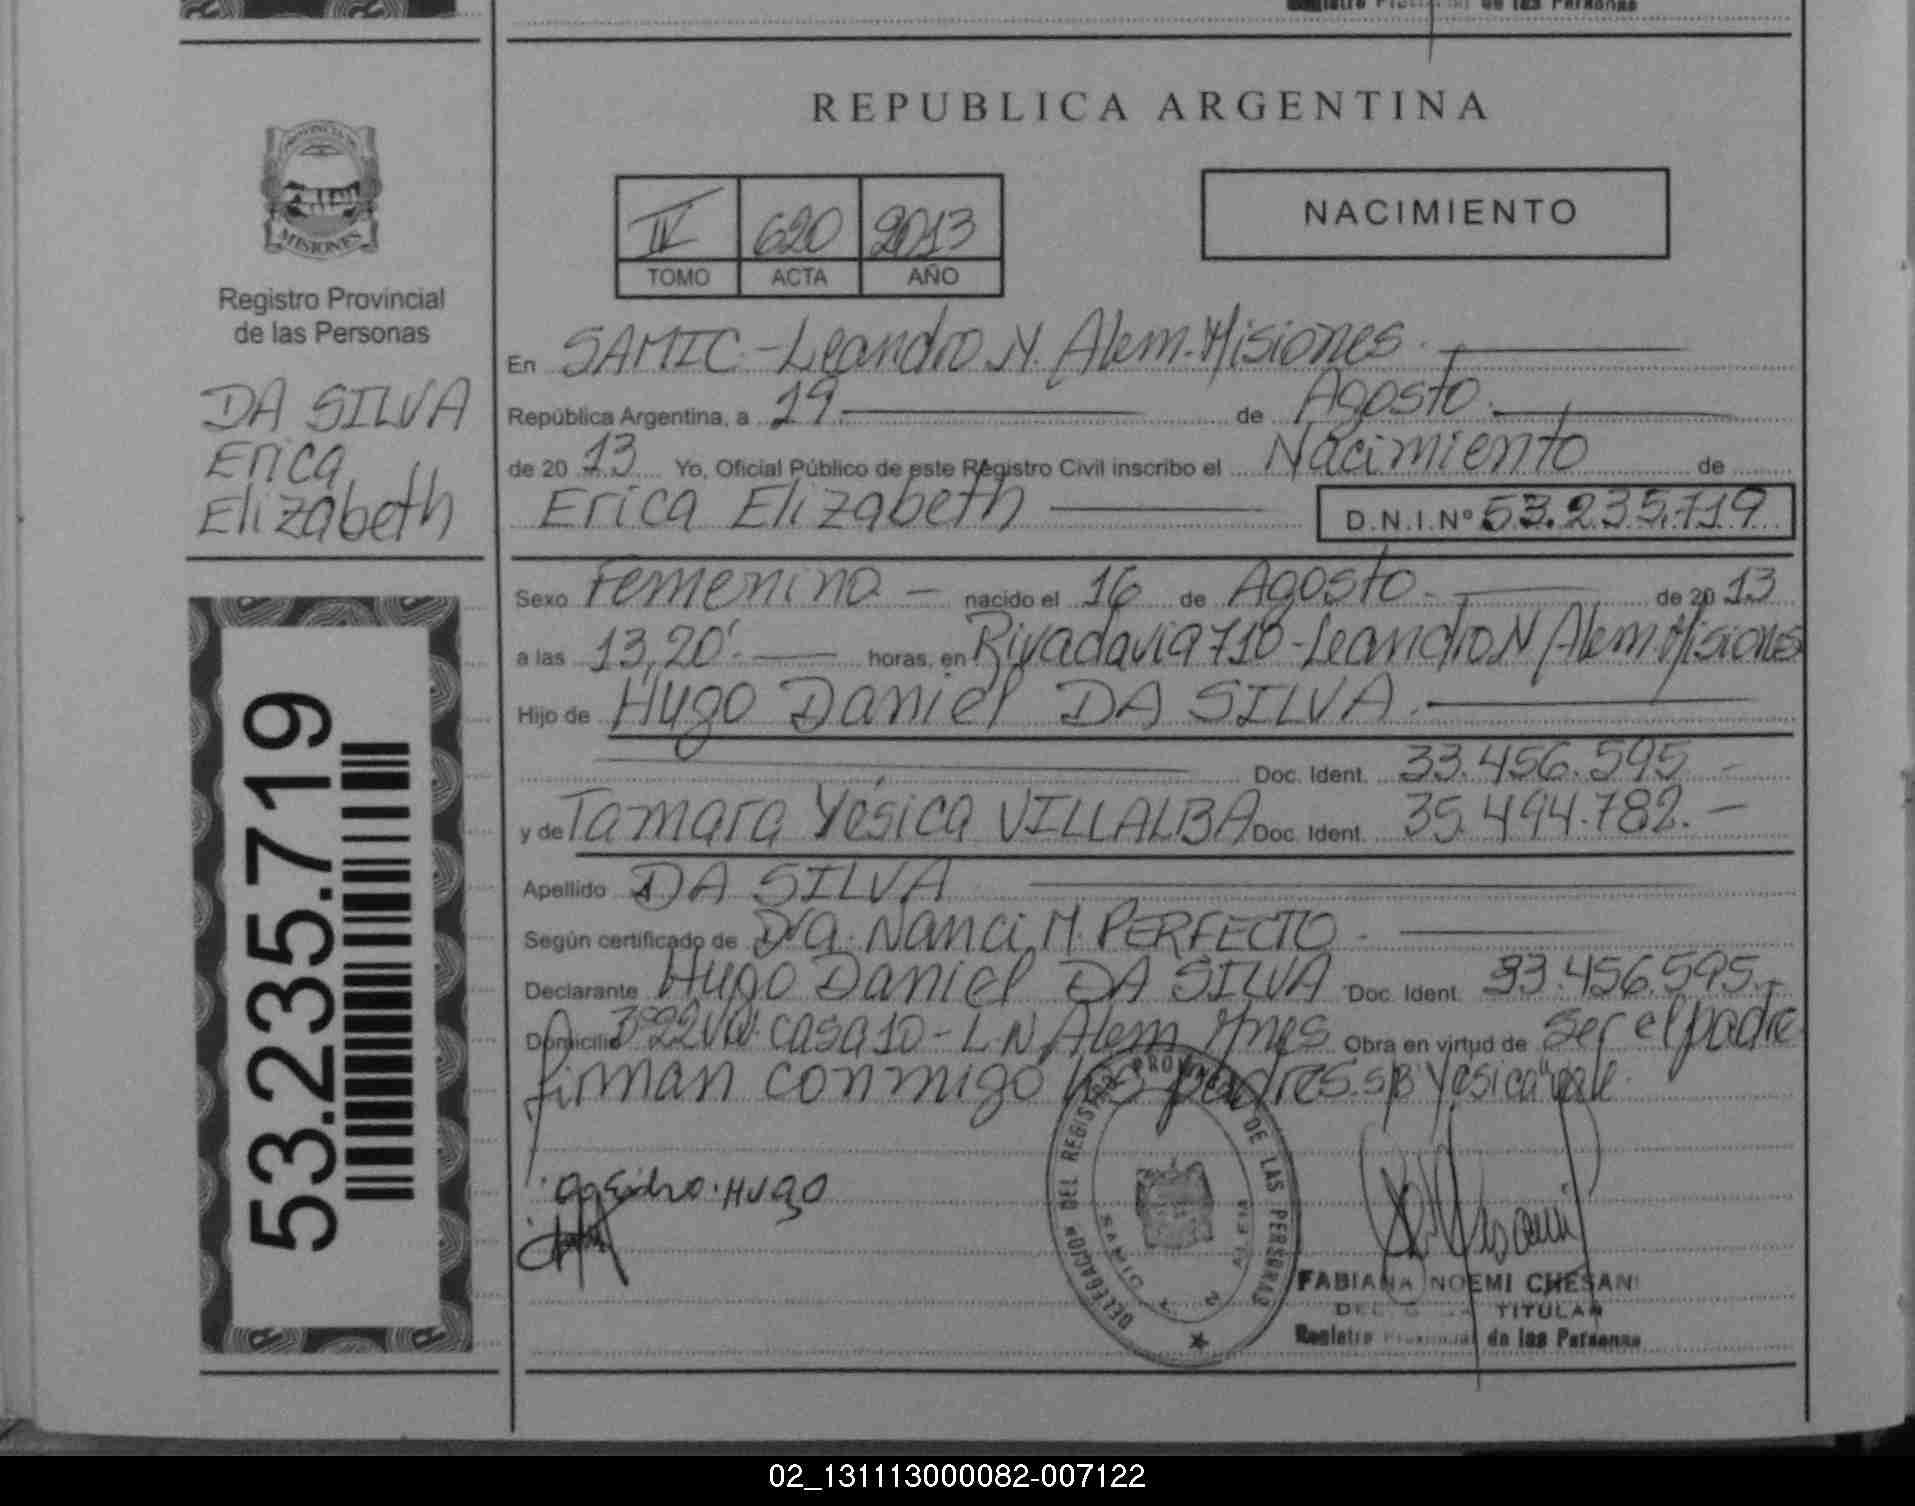 REPUBLICA ARGENTINA
PROVINCIA
MISIONES
Registro Provincial
de las Personas
DA SILVA
Erica
Elizabeth
53.235.719
IV 620 2013
TOMO ACTA AÑO
NACIMIENTO
En SAMIC.-Leandro N. Alem.-Misiones.
República Argentina, a 19. de Agosto.
de 20 13 Yo, Oficial Público de este Registro Civil inscribo el Nacimiento de
Erica Elizabeth D.N.I.Nº 53.235.719
Sexo Femenino nacido el 16 de Agosto. de 20 13
a las 13,20'. horas, en Rivadavia 710-Leandro N Alem.Misiones
Hijo de Hugo Daniel DA SILVA.
Doc. Ident. 33.456.595 -
y de Tamara Yésica VILLALBA Doc. Ident. 35.494.782.-
Apellido DA SILVA
Según certificado de Dra. Nanci, M. PERFECTO.
Declarante Hugo Daniel DA SILVA Doc. Ident. 33.456.595.-
Domicilio Casa 10-L N Alem Mnes Obra en virtud de ser el padre
firman conmigo los padres. s/B "Yesica" vale.
Hugo
DELEGACION DEL REGISTRO PROVINCIAL DE LAS PERSONAS
ALEM
FABIANA NOEMI CHESANI
TITULAR
Registro Provincial de las Personas
02_131113000082-007122